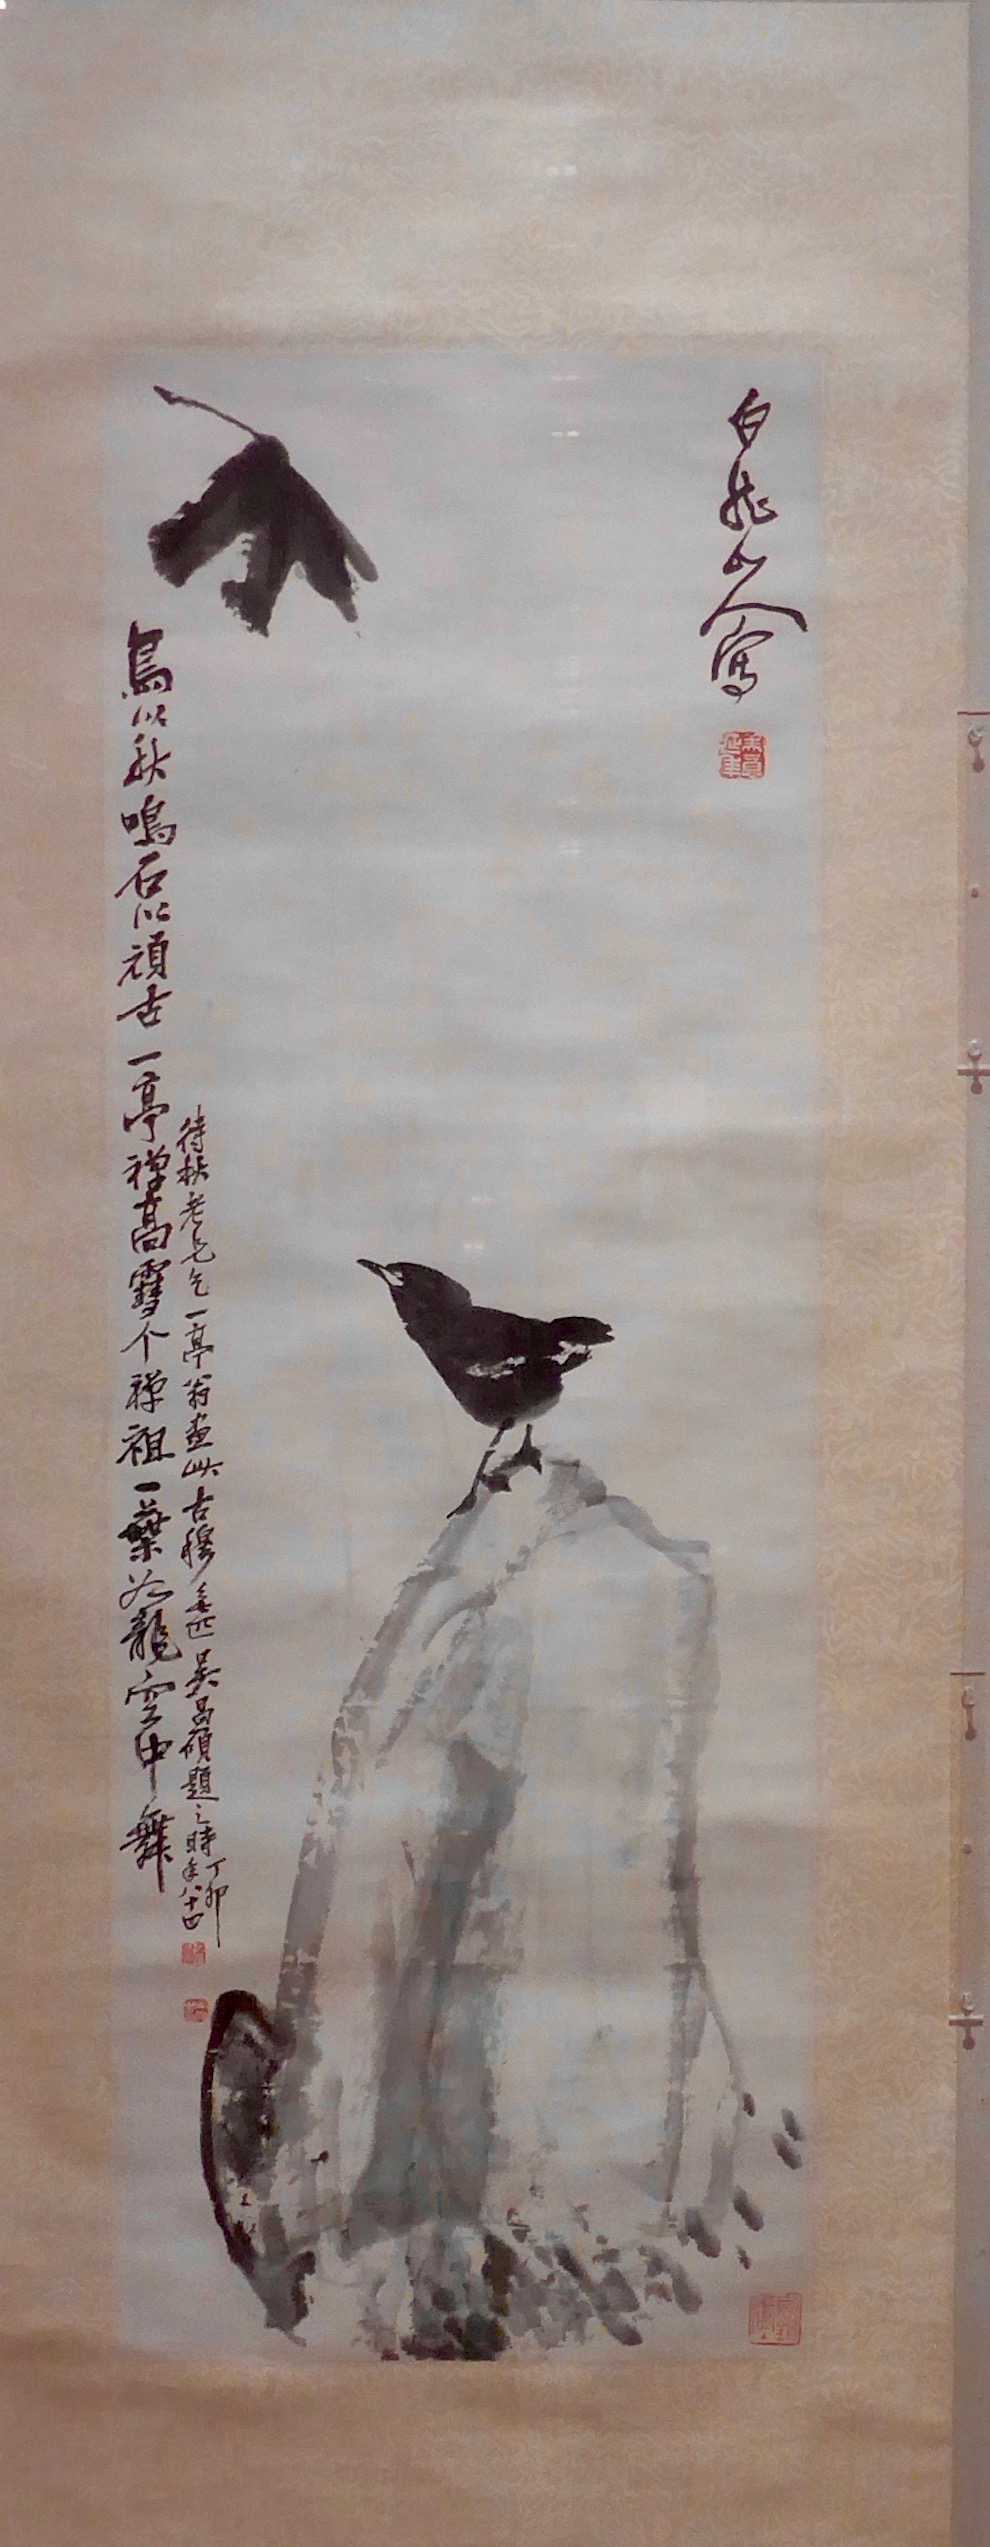 白龍山人寫
鳥以秋鳴石以頑古一亭禪高雪个禪祖一葉如龍空中舞
待秋老兄乞一亭翁畫此古穆無匹吳昌碩題之時丁卯年八十四